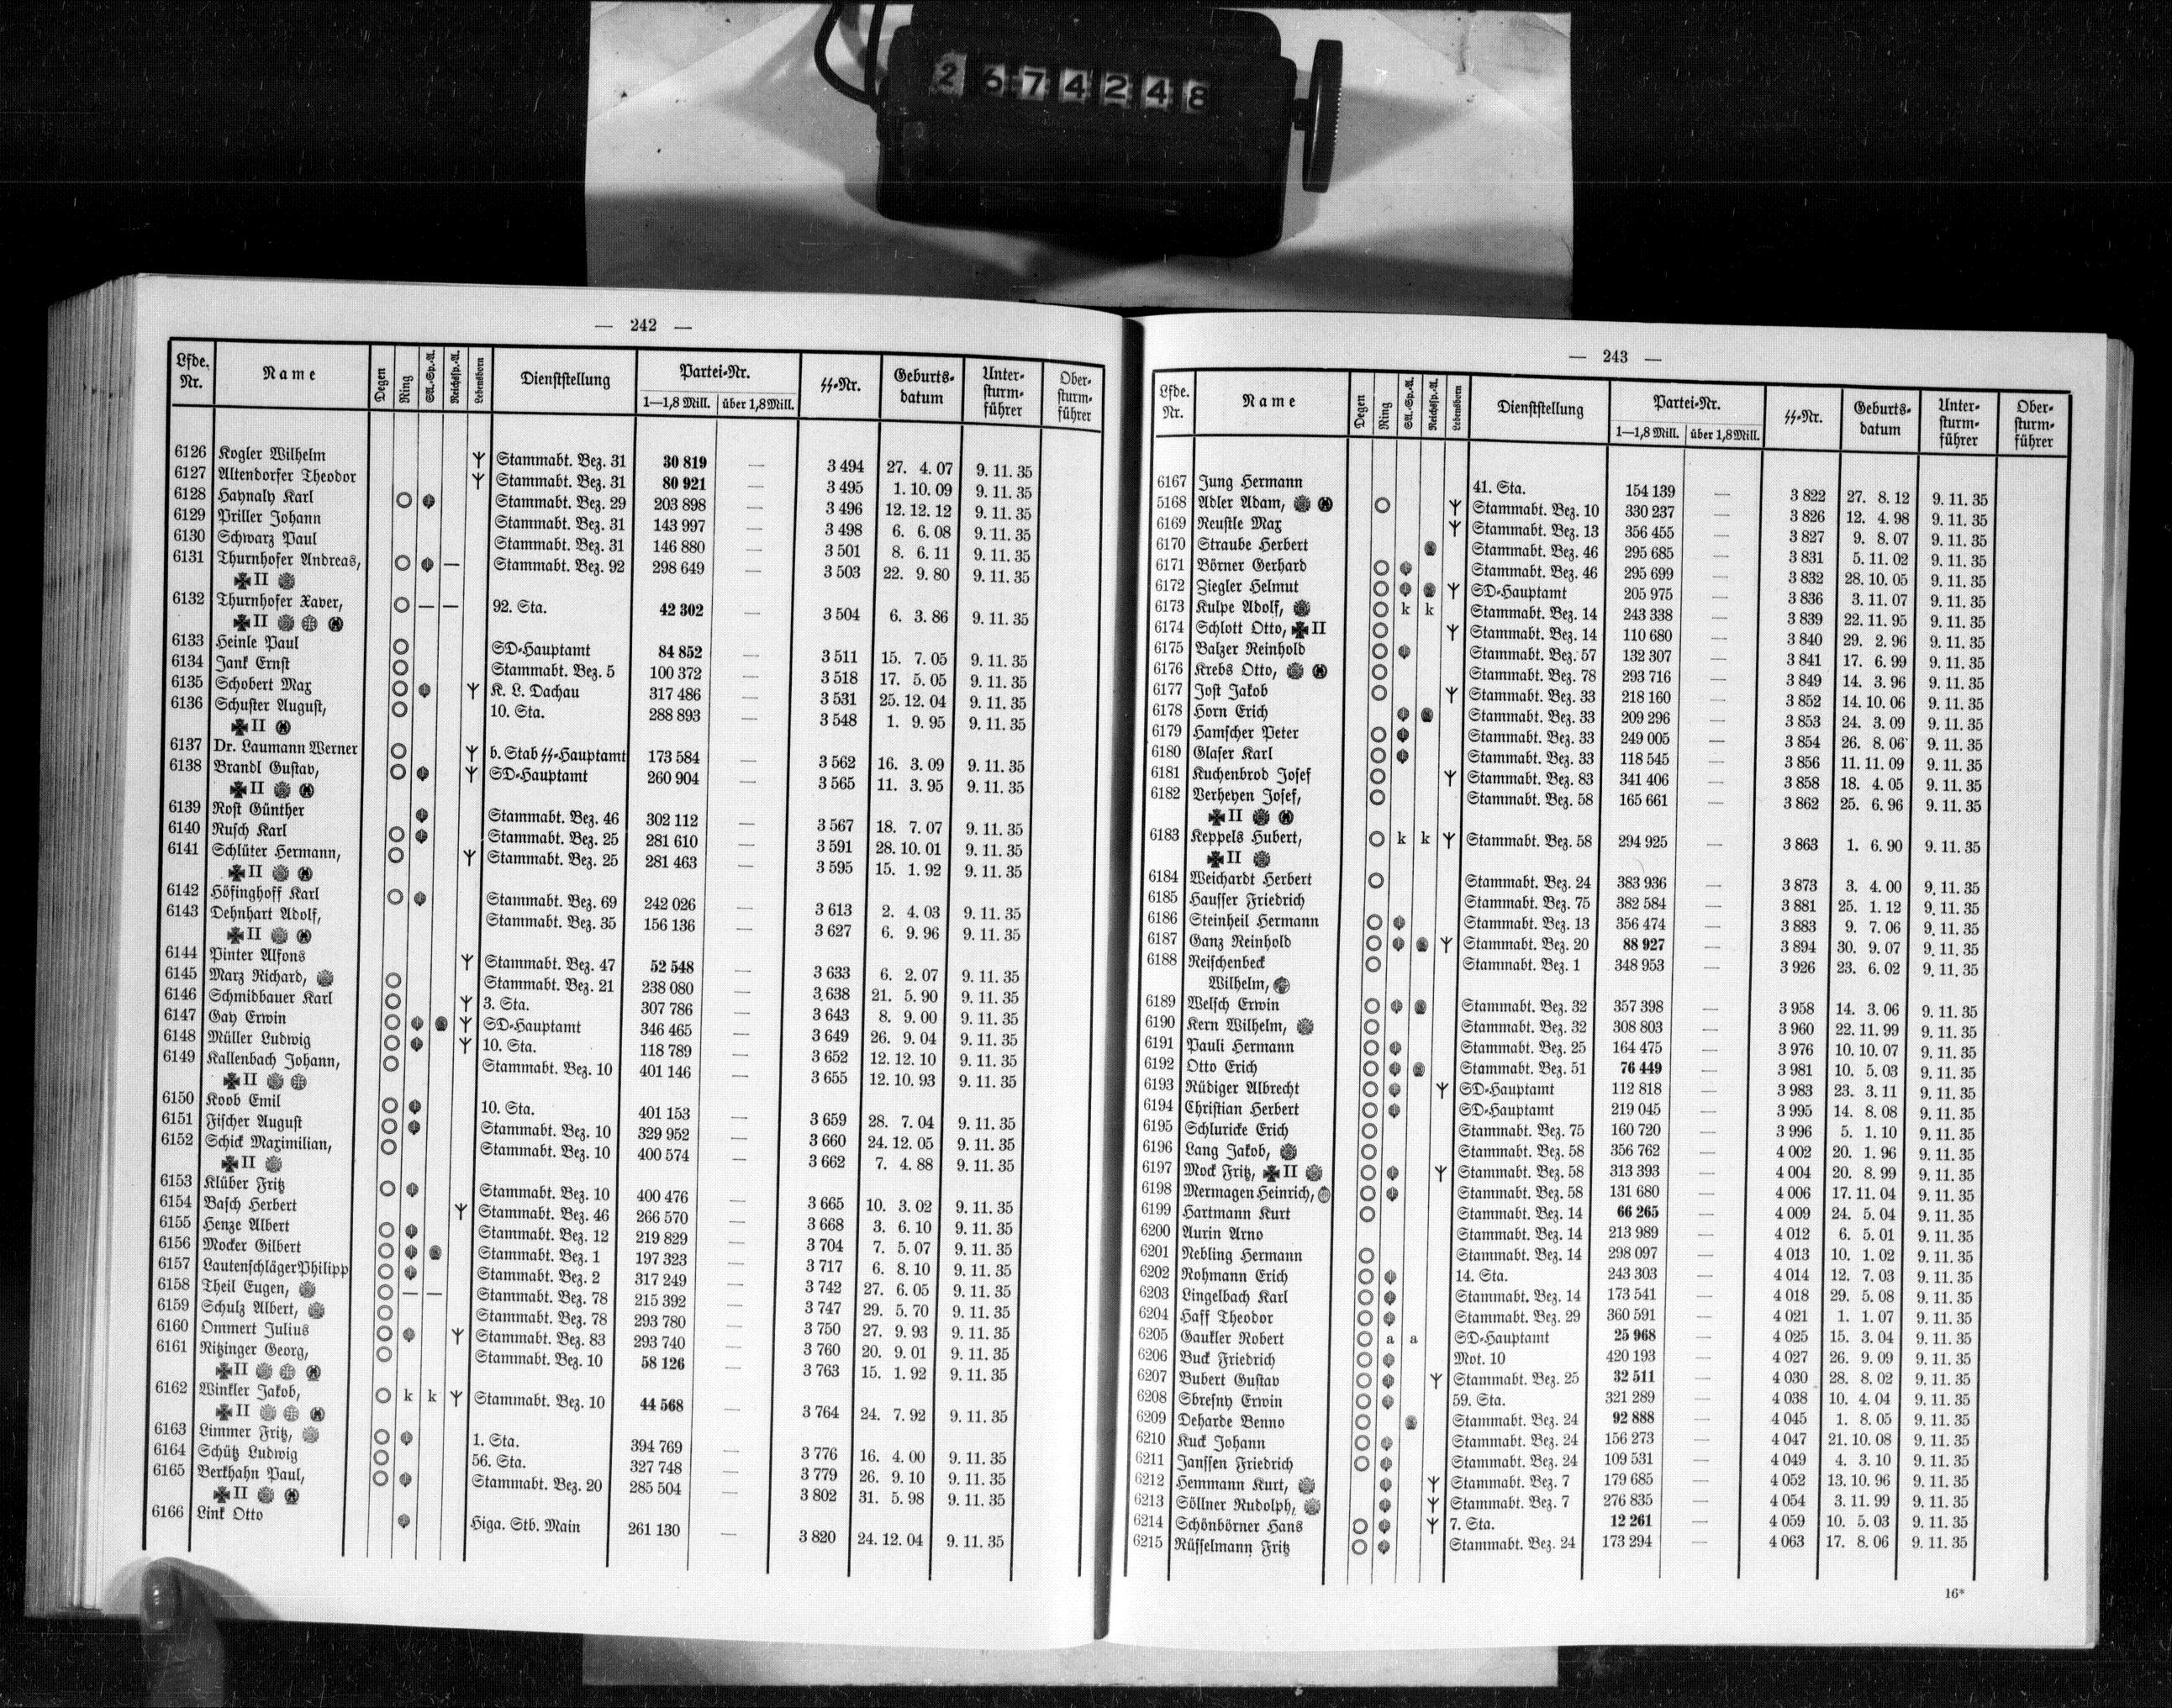 2674248
— 242 —
Lfde. Nr. Name Degen Ring SA.-Sp.-A. Reichssp.-A. Lebensborn Dienststellung Partei-Nr. 1—1,8 Mill. über 1,8 Mill. ᛋᛋ-Nr. Geburts-datum Unter-sturm-führer Ober-sturm-führer
6126 Kogler Wilhelm ᛉ Stammabt. Bez. 31 30 819 — 3 494 27. 4. 07 9. 11. 35
6127 Altendorfer Theodor ᛉ Stammabt. Bez. 31 80 921 — 3 495 1. 10. 09 9. 11. 35
6128 Haynaly Karl Stammabt. Bez. 29 203 898 — 3 496 12. 12. 12 9. 11. 35
6129 Priller Johann Stammabt. Bez. 31 143 997 — 3 498 6. 6. 08 9. 11. 35
6130 Schwarz Paul Stammabt. Bez. 31 146 880 — 3 501 8. 6. 11 9. 11. 35
6131 Thurnhofer Andreas, — Stammabt. Bez. 92 298 649 — 3 503 22. 9. 80 9. 11. 35
II
6132 Thurnhofer Xaver, — — 92. Sta. 42 302 — 3 504 6. 3. 86 9. 11. 35
II
6133 Heinle Paul SD-Hauptamt 84 852 — 3 511 15. 7. 05 9. 11. 35
6134 Jank Ernst Stammabt. Bez. 5 100 372 — 3 518 17. 5. 05 9. 11. 35
6135 Schobert Max ᛉ K. L. Dachau 317 486 — 3 531 25. 12. 04 9. 11. 35
6136 Schuster August, 10. Sta. 288 893 — 3 548 1. 9. 95 9. 11. 35
II
6137 Dr. Laumann Werner ᛉ b. Stab ᛋᛋ-Hauptamt 173 584 — 3 562 16. 3. 09 9. 11. 35
6138 Brandl Gustav, ᛉ SD-Hauptamt 260 904 — 3 565 11. 3. 95 9. 11. 35
II
6139 Rost Günther Stammabt. Bez. 46 302 112 — 3 567 18. 7. 07 9. 11. 35
6140 Rusch Karl Stammabt. Bez. 25 281 610 — 3 591 28. 10. 01 9. 11. 35
6141 Schlüter Hermann, ᛉ Stammabt. Bez. 25 281 463 — 3 595 15. 1. 92 9. 11. 35
II
6142 Höfinghoff Karl Stammabt. Bez. 69 242 026 — 3 613 2. 4. 03 9. 11. 35
6143 Dehnhart Adolf, Stammabt. Bez. 35 156 136 — 3 627 6. 9. 96 9. 11. 35
II
6144 Pinter Alfons ᛉ Stammabt. Bez. 47 52 548 — 3 633 6. 2. 07 9. 11. 35
6145 Marz Richard, Stammabt. Bez. 21 238 080 — 3 638 21. 5. 90 9. 11. 35
6146 Schmidbauer Karl ᛉ 3. Sta. 307 786 — 3 643 8. 9. 00 9. 11. 35
6147 Gay Erwin ᛉ SD-Hauptamt 346 465 — 3 649 26. 9. 04 9. 11. 35
6148 Müller Ludwig ᛉ 10. Sta. 118 789 — 3 652 12. 12. 10 9. 11. 35
6149 Kallenbach Johann, Stammabt. Bez. 10 401 146 — 3 655 12. 10. 93 9. 11. 35
II
6150 Koob Emil 10. Sta. 401 153 — 3 659 28. 7. 04 9. 11. 35
6151 Fischer August Stammabt. Bez. 10 329 952 — 3 660 24. 12. 05 9. 11. 35
6152 Schick Maximilian, Stammabt. Bez. 10 400 574 — 3 662 7. 4. 88 9. 11. 35
II
6153 Klüber Fritz Stammabt. Bez. 10 400 476 — 3 665 10. 3. 02 9. 11. 35
6154 Basch Herbert ᛉ Stammabt. Bez. 46 266 570 — 3 668 3. 6. 10 9. 11. 35
6155 Henze Albert Stammabt. Bez. 12 219 829 — 3 704 7. 5. 07 9. 11. 35
6156 Mocker Gilbert Stammabt. Bez. 1 197 323 — 3 717 6. 8. 10 9. 11. 35
6157 Lautenschläger Philipp Stammabt. Bez. 2 317 249 — 3 742 27. 6. 05 9. 11. 35
6158 Theil Eugen, — — Stammabt. Bez. 78 215 392 — 3 747 29. 5. 70 9. 11. 35
6159 Schulz Albert, Stammabt. Bez. 78 293 780 — 3 750 27. 9. 93 9. 11. 35
6160 Ommert Julius ᛉ Stammabt. Bez. 83 293 740 — 3 760 20. 9. 01 9. 11. 35
6161 Ritzinger Georg, Stammabt. Bez. 10 58 126 — 3 763 15. 1. 92 9. 11. 35
II
6162 Winkler Jakob, k k ᛉ Stammabt. Bez. 10 44 568 — 3 764 24. 7. 92 9. 11. 35
II
6163 Limmer Fritz, 1. Sta. 394 769 — 3 776 16. 4. 00 9. 11. 35
6164 Schütz Ludwig 56. Sta. 327 748 — 3 779 26. 9. 10 9. 11. 35
6165 Berkhahn Paul, Stammabt. Bez. 20 285 504 — 3 802 31. 5. 98 9. 11. 35
II
6166 Link Otto Higa. Stb. Main 261 130 — 3 820 24. 12. 04 9. 11. 35
— 243 —
Lfde. Nr. Name Degen Ring SA.-Sp.-A. Reichssp.-A. Lebensborn Dienststellung Partei-Nr. 1—1,8 Mill. über 1,8 Mill. ᛋᛋ-Nr. Geburts-datum Unter-sturm-führer Ober-sturm-führer
6167 Jung Hermann 41. Sta. 154 139 — 3 822 27. 8. 12 9. 11. 35
5168 Adler Adam, ᛉ Stammabt. Bez. 10 330 237 — 3 826 12. 4. 98 9. 11. 35
6169 Reustle Max ᛉ Stammabt. Bez. 13 356 455 — 3 827 9. 8. 07 9. 11. 35
6170 Straube Herbert Stammabt. Bez. 46 295 685 — 3 831 5. 11. 02 9. 11. 35
6171 Börner Gerhard Stammabt. Bez. 46 295 699 — 3 832 28. 10. 05 9. 11. 35
6172 Ziegler Helmut ᛉ SD-Hauptamt 205 975 — 3 836 3. 11. 07 9. 11. 35
6173 Kulpe Adolf, k k Stammabt. Bez. 14 243 338 — 3 839 22. 11. 95 9. 11. 35
6174 Schlott Otto, II ᛉ Stammabt. Bez. 14 110 680 — 3 840 29. 2. 96 9. 11. 35
6175 Balzer Reinhold Stammabt. Bez. 57 132 307 — 3 841 17. 6. 99 9. 11. 35
6176 Krebs Otto, Stammabt. Bez. 78 293 716 — 3 849 14. 3. 96 9. 11. 35
6177 Jost Jakob ᛉ Stammabt. Bez. 33 218 160 — 3 852 14. 10. 06 9. 11. 35
6178 Horn Erich Stammabt. Bez. 33 209 296 — 3 853 24. 3. 09 9. 11. 35
6179 Hamscher Peter Stammabt. Bez. 33 249 005 — 3 854 26. 8. 06 9. 11. 35
6180 Glaser Karl Stammabt. Bez. 33 118 545 — 3 856 11. 11. 09 9. 11. 35
6181 Kuchenbrod Josef ᛉ Stammabt. Bez. 83 341 406 — 3 858 18. 4. 05 9. 11. 35
6182 Verheyen Josef, Stammabt. Bez. 58 165 661 — 3 862 25. 6. 96 9. 11. 35
II
6183 Keppels Hubert, k k ᛉ Stammabt. Bez. 58 294 925 — 3 863 1. 6. 90 9. 11. 35
II
6184 Weichardt Herbert Stammabt. Bez. 24 383 936 — 3 873 3. 4. 00 9. 11. 35
6185 Hausser Friedrich Stammabt. Bez. 75 382 584 — 3 881 25. 1. 12 9. 11. 35
6186 Steinheil Hermann Stammabt. Bez. 13 356 474 — 3 883 9. 7. 06 9. 11. 35
6187 Ganz Reinhold ᛉ Stammabt. Bez. 20 88 927 — 3 894 30. 9. 07 9. 11. 35
6188 Reischenbeck Stammabt. Bez. 1 348 953 — 3 926 23. 6. 02 9. 11. 35
Wilhelm,
6189 Welsch Erwin Stammabt. Bez. 32 357 398 — 3 958 14. 3. 06 9. 11. 35
6190 Kern Wilhelm, Stammabt. Bez. 32 308 803 — 3 960 22. 11. 99 9. 11. 35
6191 Pauli Hermann Stammabt. Bez. 25 164 475 — 3 976 10. 10. 07 9. 11. 35
6192 Otto Erich Stammabt. Bez. 51 76 449 — 3 981 10. 5. 03 9. 11. 35
6193 Rüdiger Albrecht ᛉ SD-Hauptamt 112 818 — 3 983 23. 3. 11 9. 11. 35
6194 Christian Herbert SD-Hauptamt 219 045 — 3 995 14. 8. 08 9. 11. 35
6195 Schluricke Erich Stammabt. Bez. 75 160 720 — 3 996 5. 1. 10 9. 11. 35
6196 Lang Jakob, Stammabt. Bez. 58 356 762 — 4 002 20. 1. 96 9. 11. 35
6197 Mock Fritz, II ᛉ Stammabt. Bez. 58 313 393 — 4 004 20. 8. 99 9. 11. 35
6198 Mermagen Heinrich, Stammabt. Bez. 58 131 680 — 4 006 17. 11. 04 9. 11. 35
6199 Hartmann Kurt Stammabt. Bez. 14 66 265 — 4 009 24. 5. 04 9. 11. 35
6200 Aurin Arno Stammabt. Bez. 14 213 989 — 4 012 6. 5. 01 9. 11. 35
6201 Nebling Hermann Stammabt. Bez. 14 298 097 — 4 013 10. 1. 02 9. 11. 35
6202 Rohmann Erich 14. Sta. 243 303 — 4 014 12. 7. 03 9. 11. 35
6203 Lingelbach Karl Stammabt. Bez. 14 173 541 — 4 018 29. 5. 08 9. 11. 35
6204 Haff Theodor Stammabt. Bez. 29 360 591 — 4 021 1. 1. 07 9. 11. 35
6205 Gaukler Robert a a SD-Hauptamt 25 968 — 4 025 15. 3. 04 9. 11. 35
6206 Buck Friedrich Mot. 10 420 193 — 4 027 26. 9. 09 9. 11. 35
6207 Bubert Gustav ᛉ Stammabt. Bez. 25 32 511 — 4 030 28. 8. 02 9. 11. 35
6208 Sbresny Erwin 59. Sta. 321 289 — 4 038 10. 4. 04 9. 11. 35
6209 Deharde Benno Stammabt. Bez. 24 92 888 — 4 045 1. 8. 05 9. 11. 35
6210 Kuck Johann Stammabt. Bez. 24 156 273 — 4 047 21. 10. 08 9. 11. 35
6211 Janssen Friedrich Stammabt. Bez. 24 109 531 — 4 049 4. 3. 10 9. 11. 35
6212 Hemmann Kurt, ᛉ Stammabt. Bez. 7 179 685 — 4 052 13. 10. 96 9. 11. 35
6213 Söllner Rudolph, ᛉ Stammabt. Bez. 7 276 835 — 4 054 3. 11. 99 9. 11. 35
6214 Schönbörner Hans ᛉ 7. Sta. 12 261 — 4 059 10. 5. 03 9. 11. 35
6215 Rüsselmann Fritz Stammabt. Bez. 24 173 294 — 4 063 17. 8. 06 9. 11. 35
16*